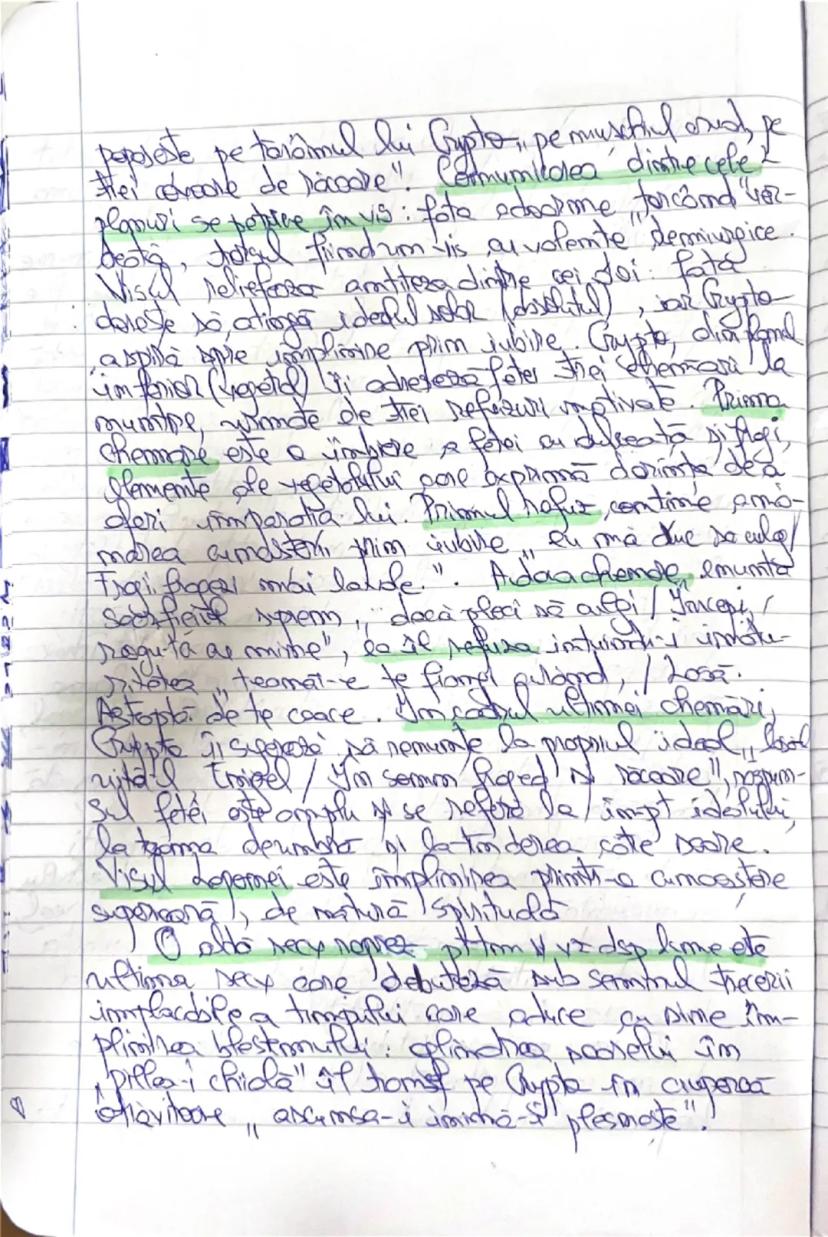 poposește pe tărâmul lui Crypto „pe mușchiul crud, pe
trei covoare de răcoare". Comunicarea dintre cele 2
planuri se petrece în vis: fata adoarme „torcând" ver-
deață, totul fiind un vis cu valențe demiurgice.
Visul reliefează antiteza dintre cei doi: fata
dorește să atingă idealul solar (absolutul), iar Crypto
aspiră spre împlinire prin iubire. Crypto, din planul
inferior (vegetal) îi adresează fetei trei chemări la
nuntire, urmate de trei refuzuri motivate. Prima
chemare este o îmbiere a fetei cu dulceață și fragi,
elemente ale vegetalului care exprimă dorința de a
oferi împărăția lui. Primul refuz conține amâ-
narea cunoașterii prin iubire „eu mă duc să culeg/
Fragii fragezi mai la vale". A doua chemare, enunță
sacrificiul suprem „dacă pleci să culegi / Începi, /
rogu-te cu mine", ea îl refuza intuindu-i imatu-
ritatea „teamă-e te frângi curând, / Lasă.
Așteaptă de te coace. În cadrul ultimei chemări,
Crypto îi sugerează să renunțe la propriul ideal „lasă
uită-l Enigel / În somn fraged și răcoare", răspun-
sul fetei este amplu și se referă la / impt idealului,
la teama de umbră și la tinderea către soare.
Visul laponei este împlinirea printr-o cunoaștere
superioară, de natură spirituală
O altă secv reprez pttm și vz dsp lume este
ultima secv care debutează sub semnul trecerii
implacabile a timpului care aduce cu sine îm-
plinirea blestemului: oglindirea soarelui în
„pielea-i chială" îl transf pe Crypto în ciupercă
otrăvitoare „ascunsa-i inimă-i plesnește".